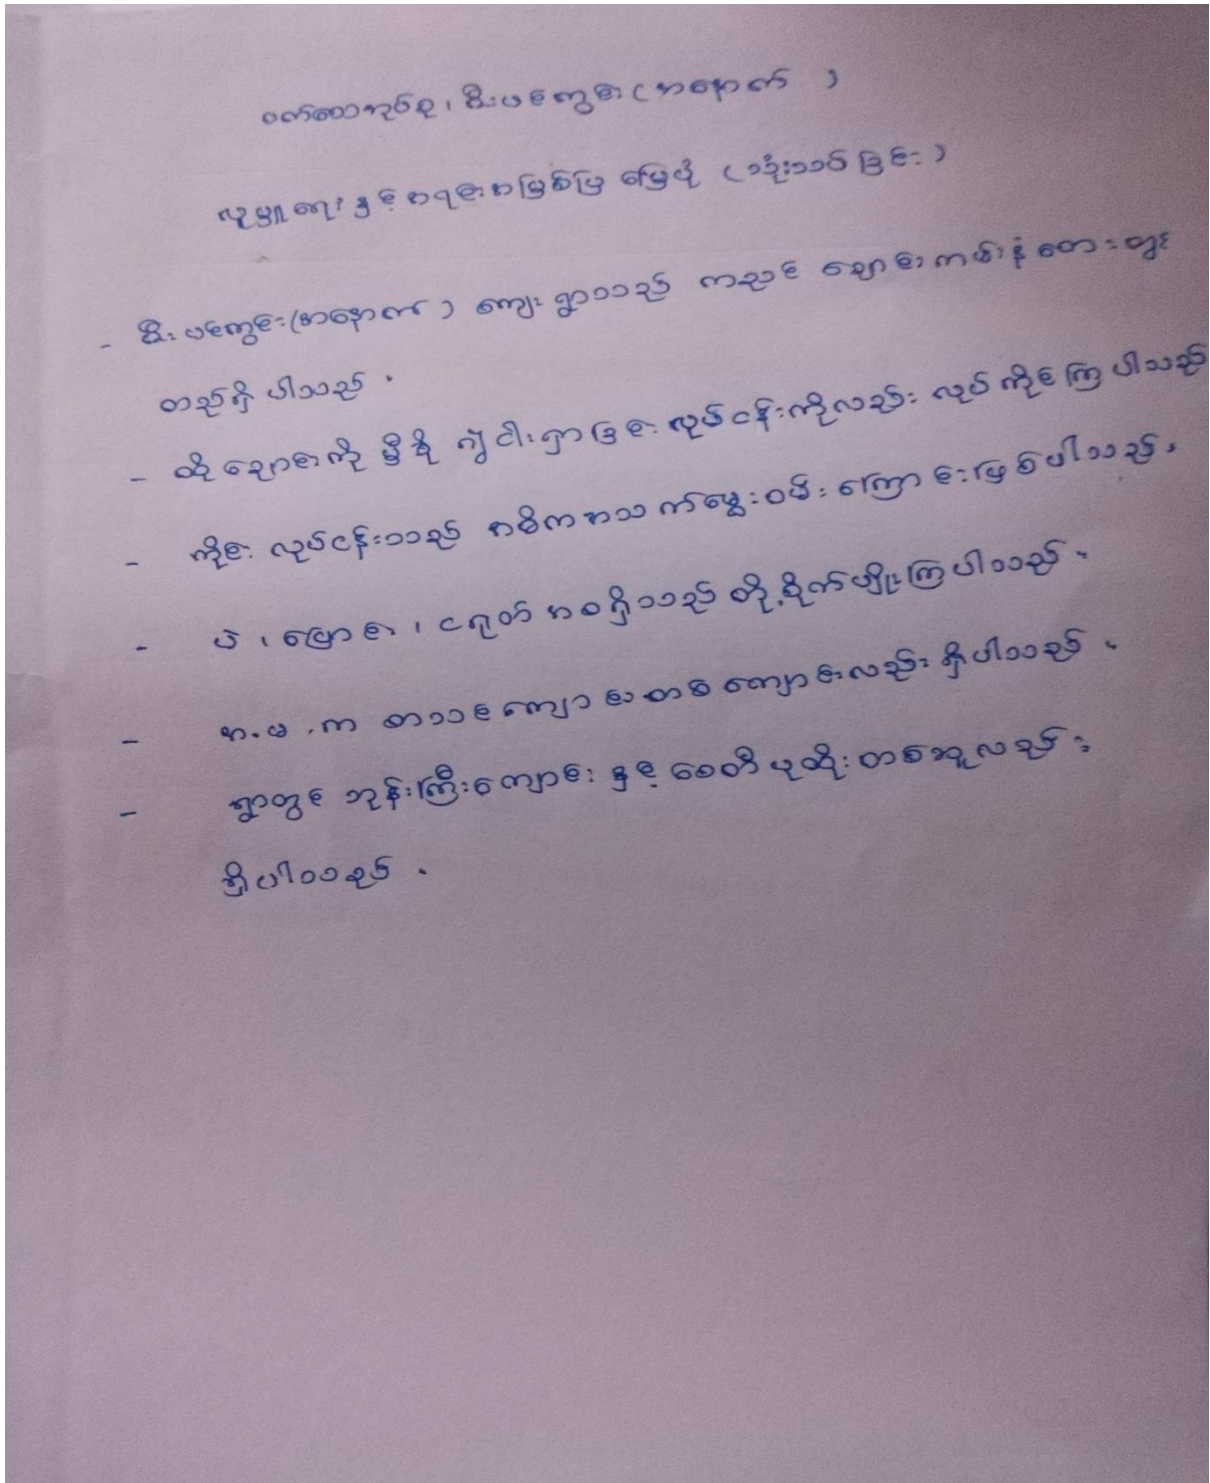 ဝက်ထောအုပ်စု၊ မီးပင်ကွင်း(အနောက် )
လူမှုရေး နှင့် စရင်းအမြစ်ပြ မြေပုံ (သုံးသပ်ခြင်း)
- မီးပင်ကွင်း(အနောက် ) ကျေးရွာသည် ကညင် ချောင်းကမ်းနံဘေးတွင်
တည်ရှိ ပါသည် ။
- ထိုချောင်းကို မှီ၍ ငါးရှာခြင်း လုပ်ငန်းကိုလည်း လုပ်ကိုင်ကြပါသည်
- ကိုင်း လုပ်ငန်းသည် အဓိက အသက်မွေးဝမ်း ကြောင်းဖြစ်ပါသည်။
- ပဲ ၊ ပြောင်း ၊ ငရုတ် အစရှိသည် တို့စိုက်ပျိုးကြပါသည် ။
- အ.မ.က စာသင်ကျောင်းတစ်ကျောင်းလည်း ရှိပါသည် ။
- ရွာတွင် ဘုန်းကြီးကျောင်း နှင့် စေတီပုထိုး တစ်ဆူလည်း
ရှိပါသည် ။